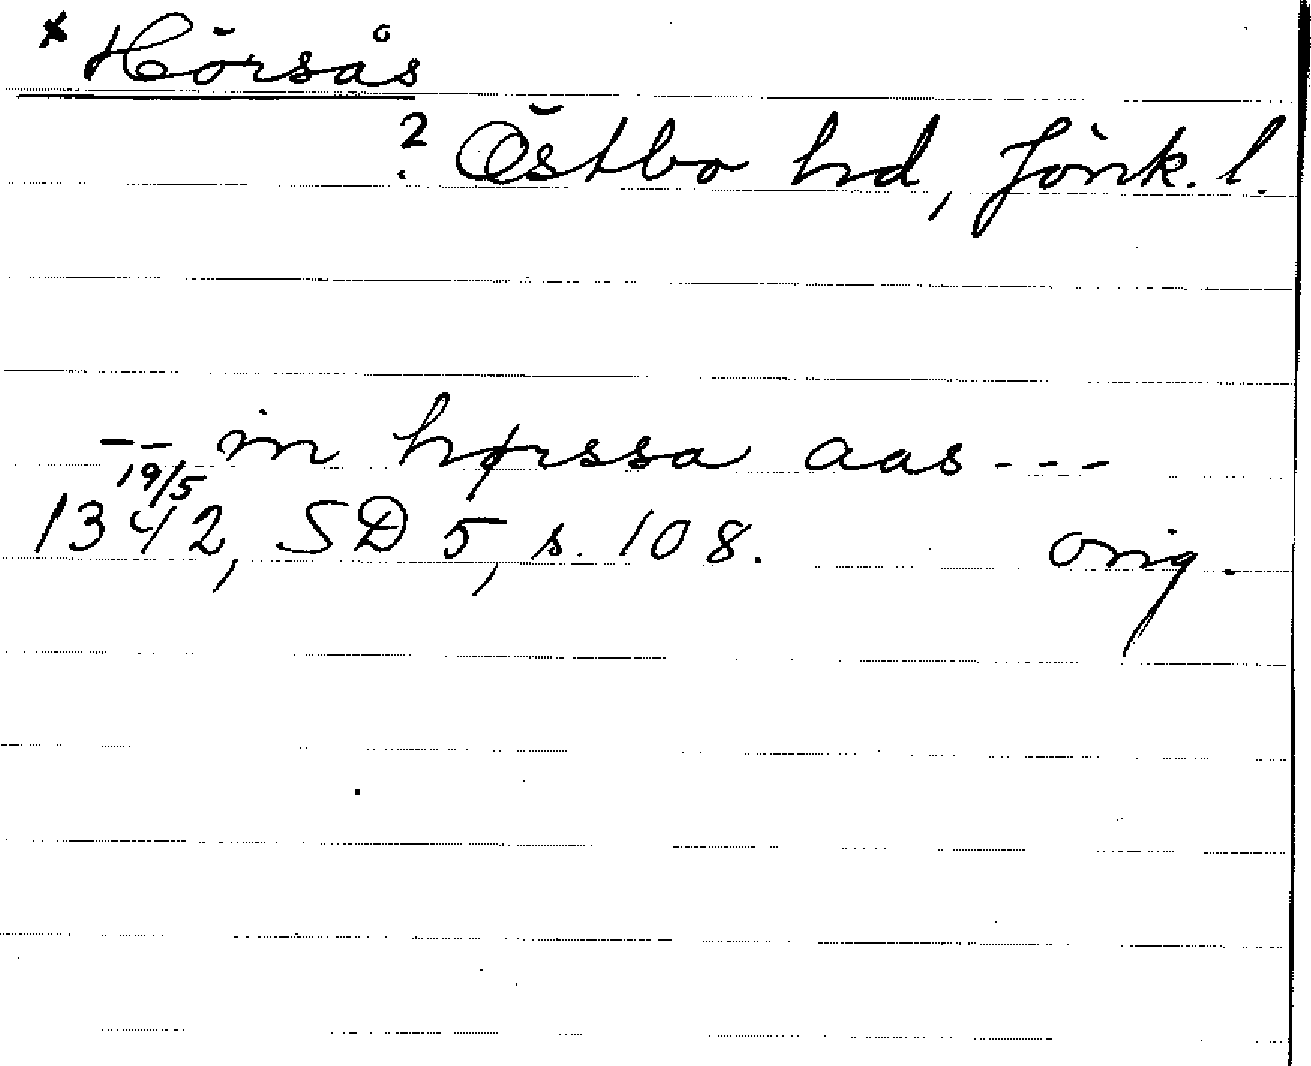 * Hörsås
? Östbo hd, Jönk. l.
-- in hørssa aas ---
19/5
1342, SD 5, s. 108. Orig.